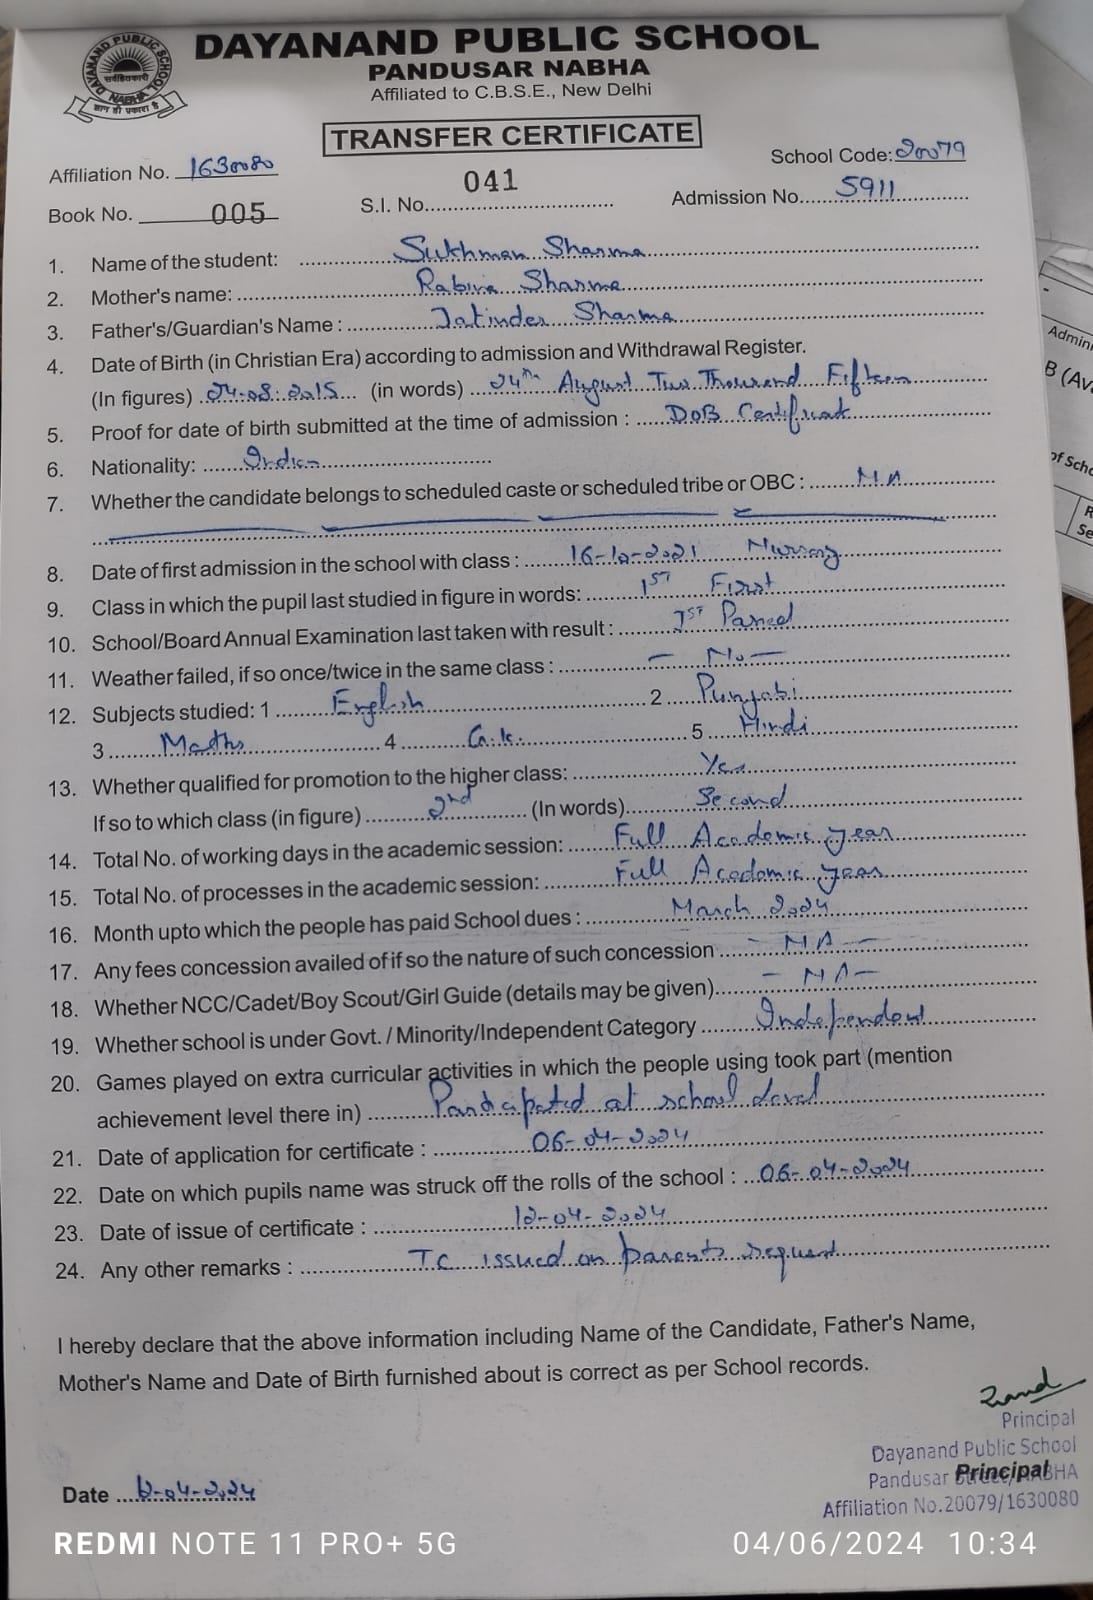 DAYANAND PUBLIC SCHOOL
PANDUSAR NABHA
Affiliated to C.B.S.E., New Delhi
DAYANAND PUBLIC SCHOOL
NABHA
सर्वहितकारी
ज्ञान ही प्रकाश है
TRANSFER CERTIFICATE
Affiliation No. 1630080 School Code: 20079
Book No. 005 S.I. No. 041 Admission No. 5911
1. Name of the student: Sukhman Sharma
2. Mother's name: Sharma
3. Father's/Guardian's Name : Jatinder Sharma
4. Date of Birth (in Christian Era) according to admission and Withdrawal Register.
(In figures) 24-08-2015 (in words) 24th August Two Thousand Fifteen
5. Proof for date of birth submitted at the time of admission : DOB Certificate
6. Nationality: Indian
7. Whether the candidate belongs to scheduled caste or scheduled tribe or OBC : NA
8. Date of first admission in the school with class : 16-10-2021 Nursery
9. Class in which the pupil last studied in figure in words: 1ST First
10. School/Board Annual Examination last taken with result : 1ST Passed
11. Weather failed, if so once/twice in the same class : - No -
12. Subjects studied: 1 English 2 Punjabi
3 Maths 4 G.K. 5 Hindi
13. Whether qualified for promotion to the higher class: Yes
If so to which class (in figure) 2nd (In words) Second
14. Total No. of working days in the academic session: Full Academic year
15. Total No. of processes in the academic session: Full Academic year
16. Month upto which the people has paid School dues : March 2024
17. Any fees concession availed of if so the nature of such concession - NA -
18. Whether NCC/Cadet/Boy Scout/Girl Guide (details may be given) - NA -
19. Whether school is under Govt. / Minority/Independent Category Independent
20. Games played on extra curricular activities in which the people using took part (mention
achievement level there in) Participated at school level
21. Date of application for certificate : 06-04-2024
22. Date on which pupils name was struck off the rolls of the school : 06-04-2024
23. Date of issue of certificate : 12-04-2024
24. Any other remarks : TC issued on parents request
I hereby declare that the above information including Name of the Candidate, Father's Name,
Mother's Name and Date of Birth furnished about is correct as per School records.
Principal
Dayanand Public School
Pandusar Street, NABHA
Principal
Affiliation No.20079/1630080
Date 12-04-2024
REDMI NOTE 11 PRO+ 5G 04/06/2024 10:34
Admin
B (Av
of Scho
R
Se